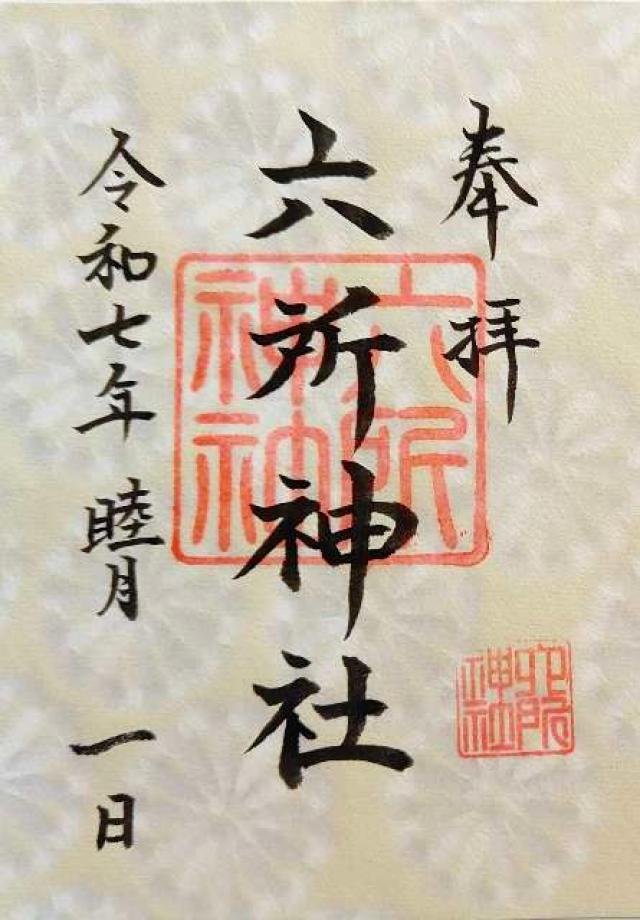 奉拝
六所神社
令和七年 睦月 一日
六所神社